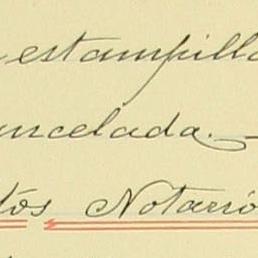 estampilla
ancelada.
tós Notarió